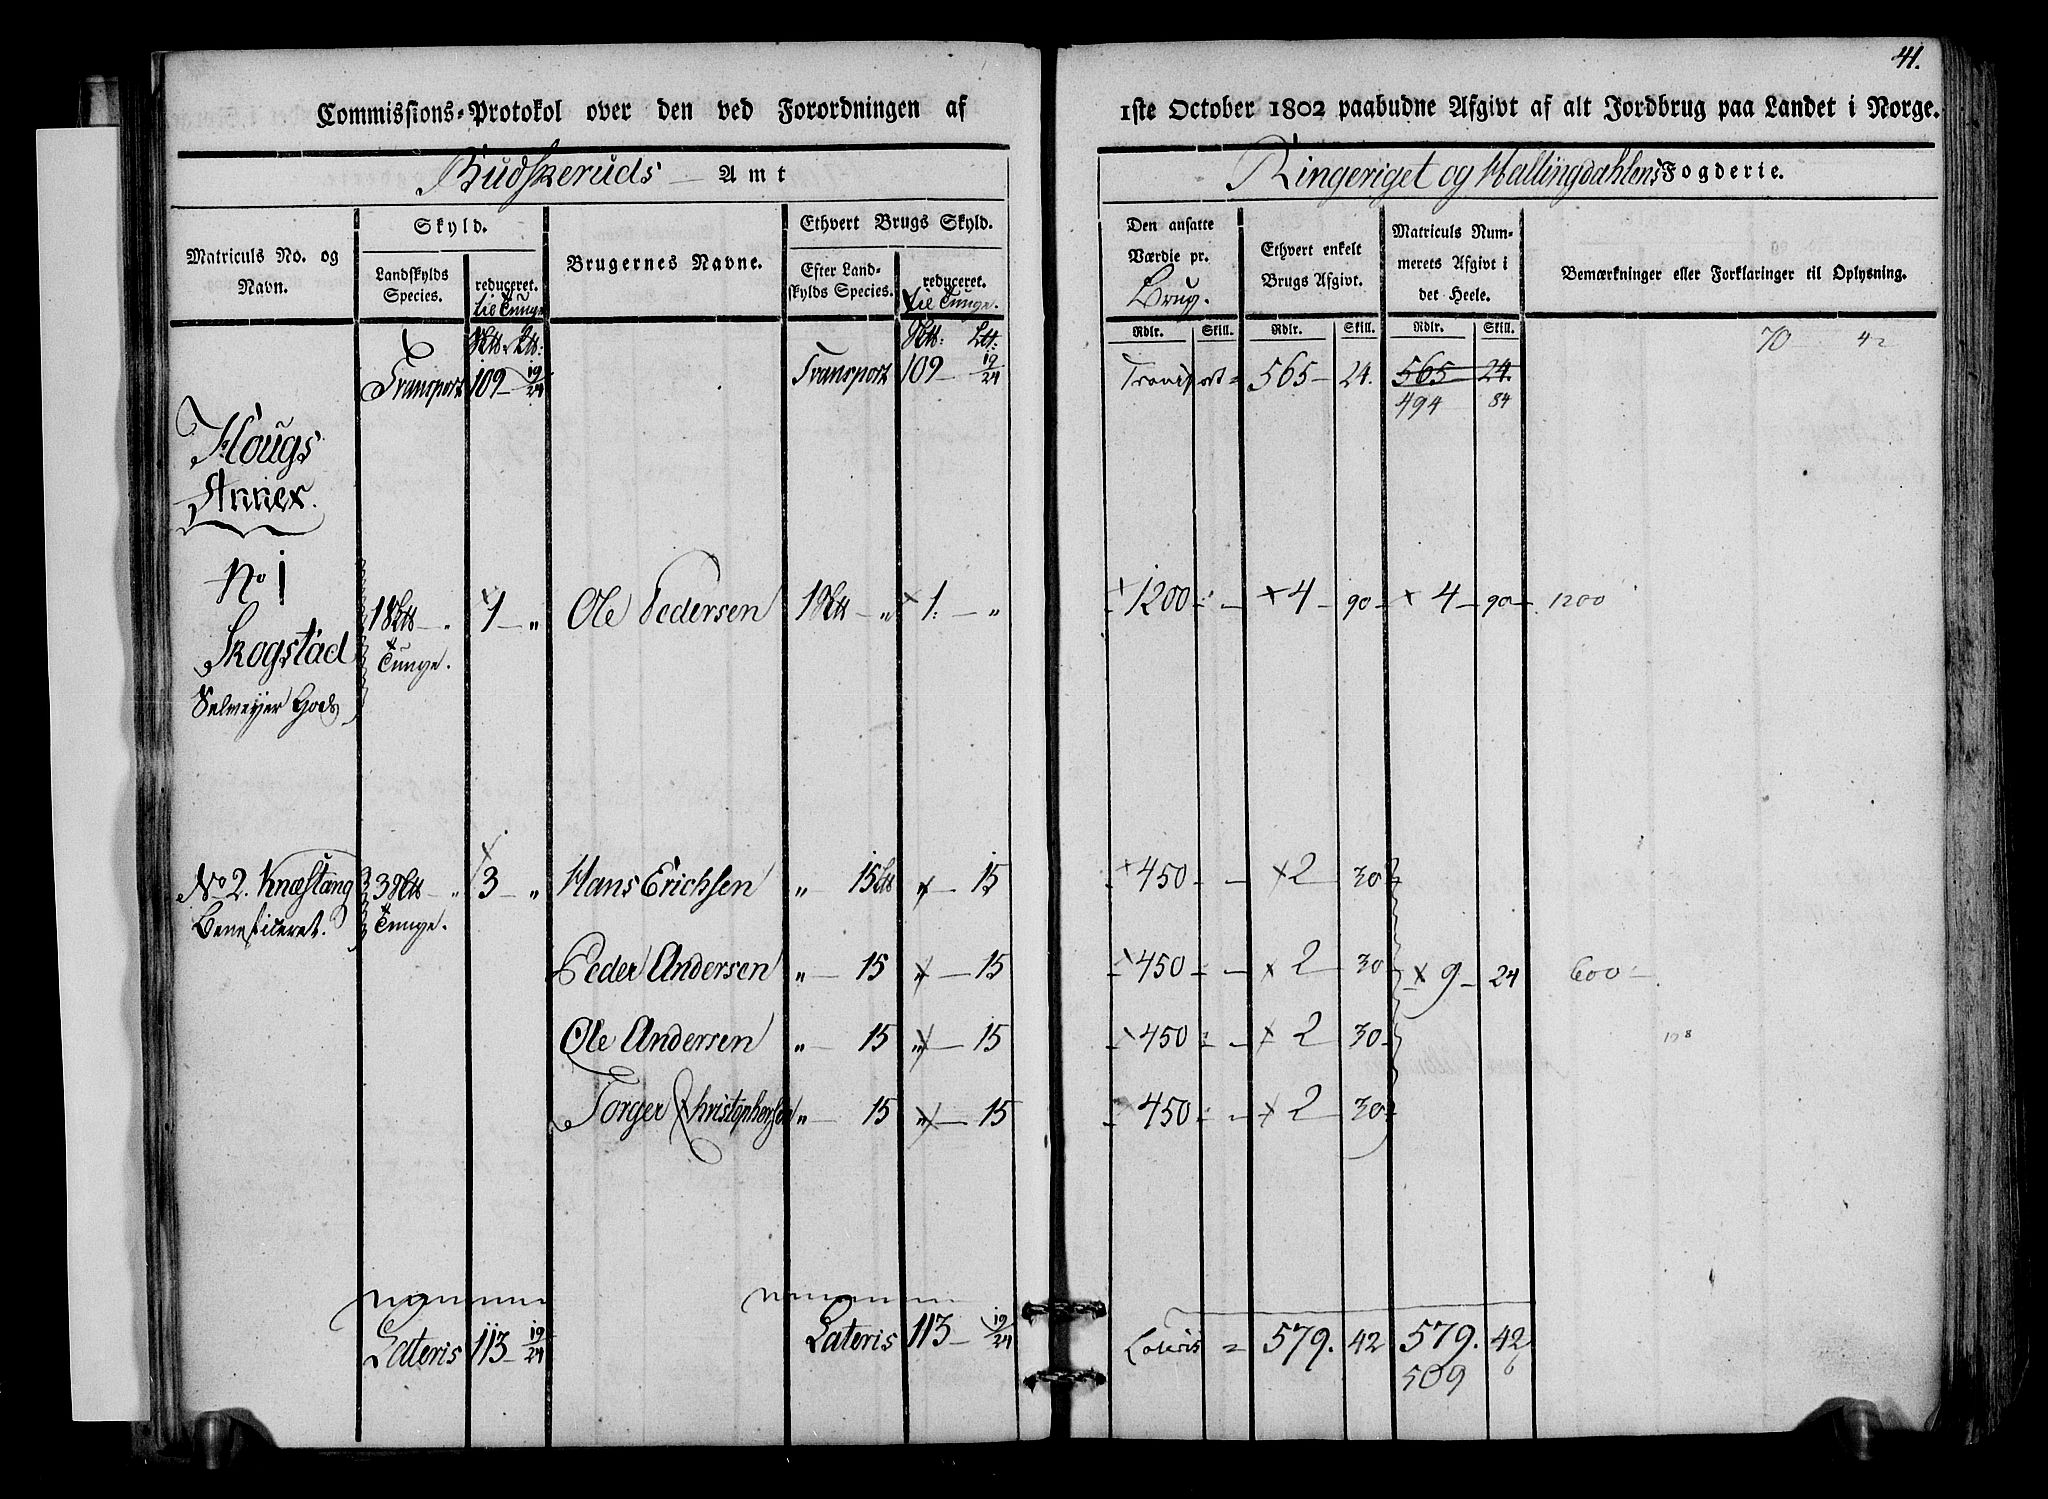 41.
Commissions-Protokol over den ved Forordningen af 1ste October 1802 paabudne Afgivt af alt Jordbrug paa Landet i Norge.
Budskeruds Amt
Ringeriget og Hallingdahlens Fogderie.
Matriculs No. og Navn.
Skyld.
Landskylds Species.
reduceret. til Tunge
Brugernes Navne.
Ethvert Brugs Skyld.
Efter Landskylds Species.
reduceret. til Tunge.
Den ansatte Værdie pr. Brug.
Ethvert enkelt Brugs Afgivt.
Matriculs Nummerets Afgivt i det Heele.
Bemærkninger eller Forklaringer til Oplysning.
Rdlr. Skill. Rdlr. Skill. Rdlr. Skill.
70 42
Transport 109 19/24 Transport 109 19/24 Transport = 565 24. 565 24.
494 84
Hougs
Annex.
No 1
Skogstad
1 " 1 " Ole Pedersen 1 " 1 " 1200 4 90 4 90 1200
Tunge.
Selmeyer Gods
No 2. Knæstang 3 " 3 " Hans Erichsen " 15 " 15 450 2 30
Beneficeret. Tunge.
Peder Andersen " 15 " 15 450 2 30 9 24 600
Ole Andersen " 15 " 15 450 2 30
Torger Christophersen " 15 " 15 450 2 30
Lateris 113 19/24 Lateris 113 19/24 Lateris = 579. 42 579. 42
509 6